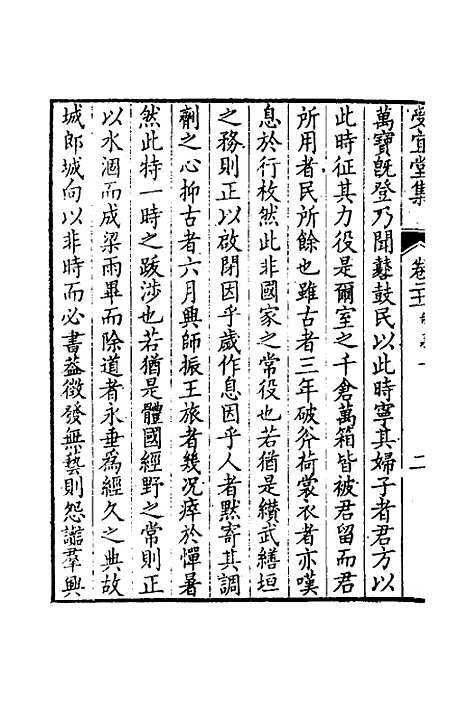 愛宜堂集 卷二十 二
萬寶既登乃聞鼛鼓民以此時寧其婦子者君方以
此時征其力役是爾室之千倉萬箱皆被君留而君
所用者民所餘也雖古者三年破斧荷裳衣者亦嘆
息於行枚然此非國家之常役也若猶是纘武繕垣
之務則正以啟閉因乎歲作息因乎人者默寄其調
劑之心抑古者六月興師振王旅者幾况瘁於憚暑
然此特一時之跋涉也若猶是體國經野之常則正
以水涸而成梁雨畢而除道者永垂爲經久之典故
城郎城向以非時而必書葢徵發無藝則怨讟羣興